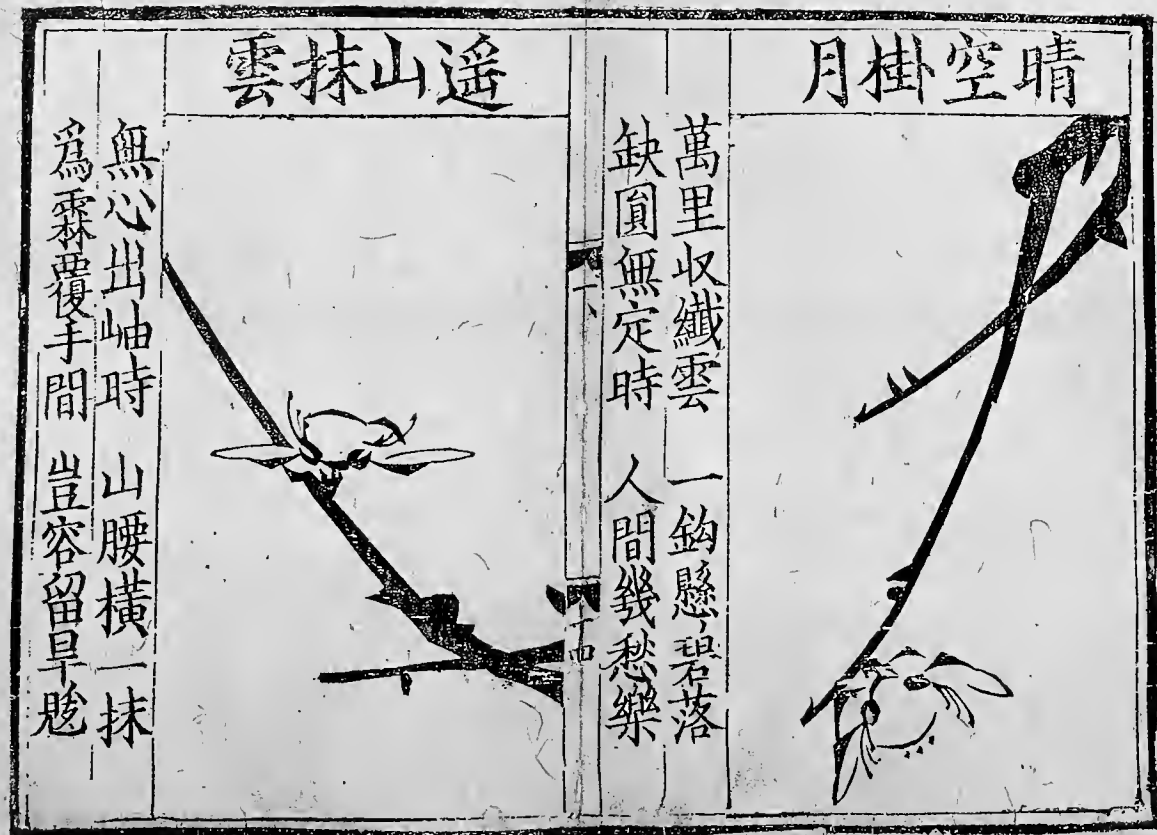 晴空掛月
萬里収纖雲 一鈎懸碧落
缺圓無定時 人間幾愁樂
下
十四
遥山抹雲
無心出岫時 山腰橫一抹
爲霖覆手間 豈容留旱魃